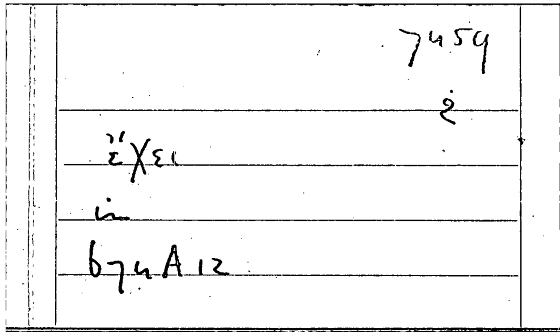 7459
ἔχει
in
674 A 12